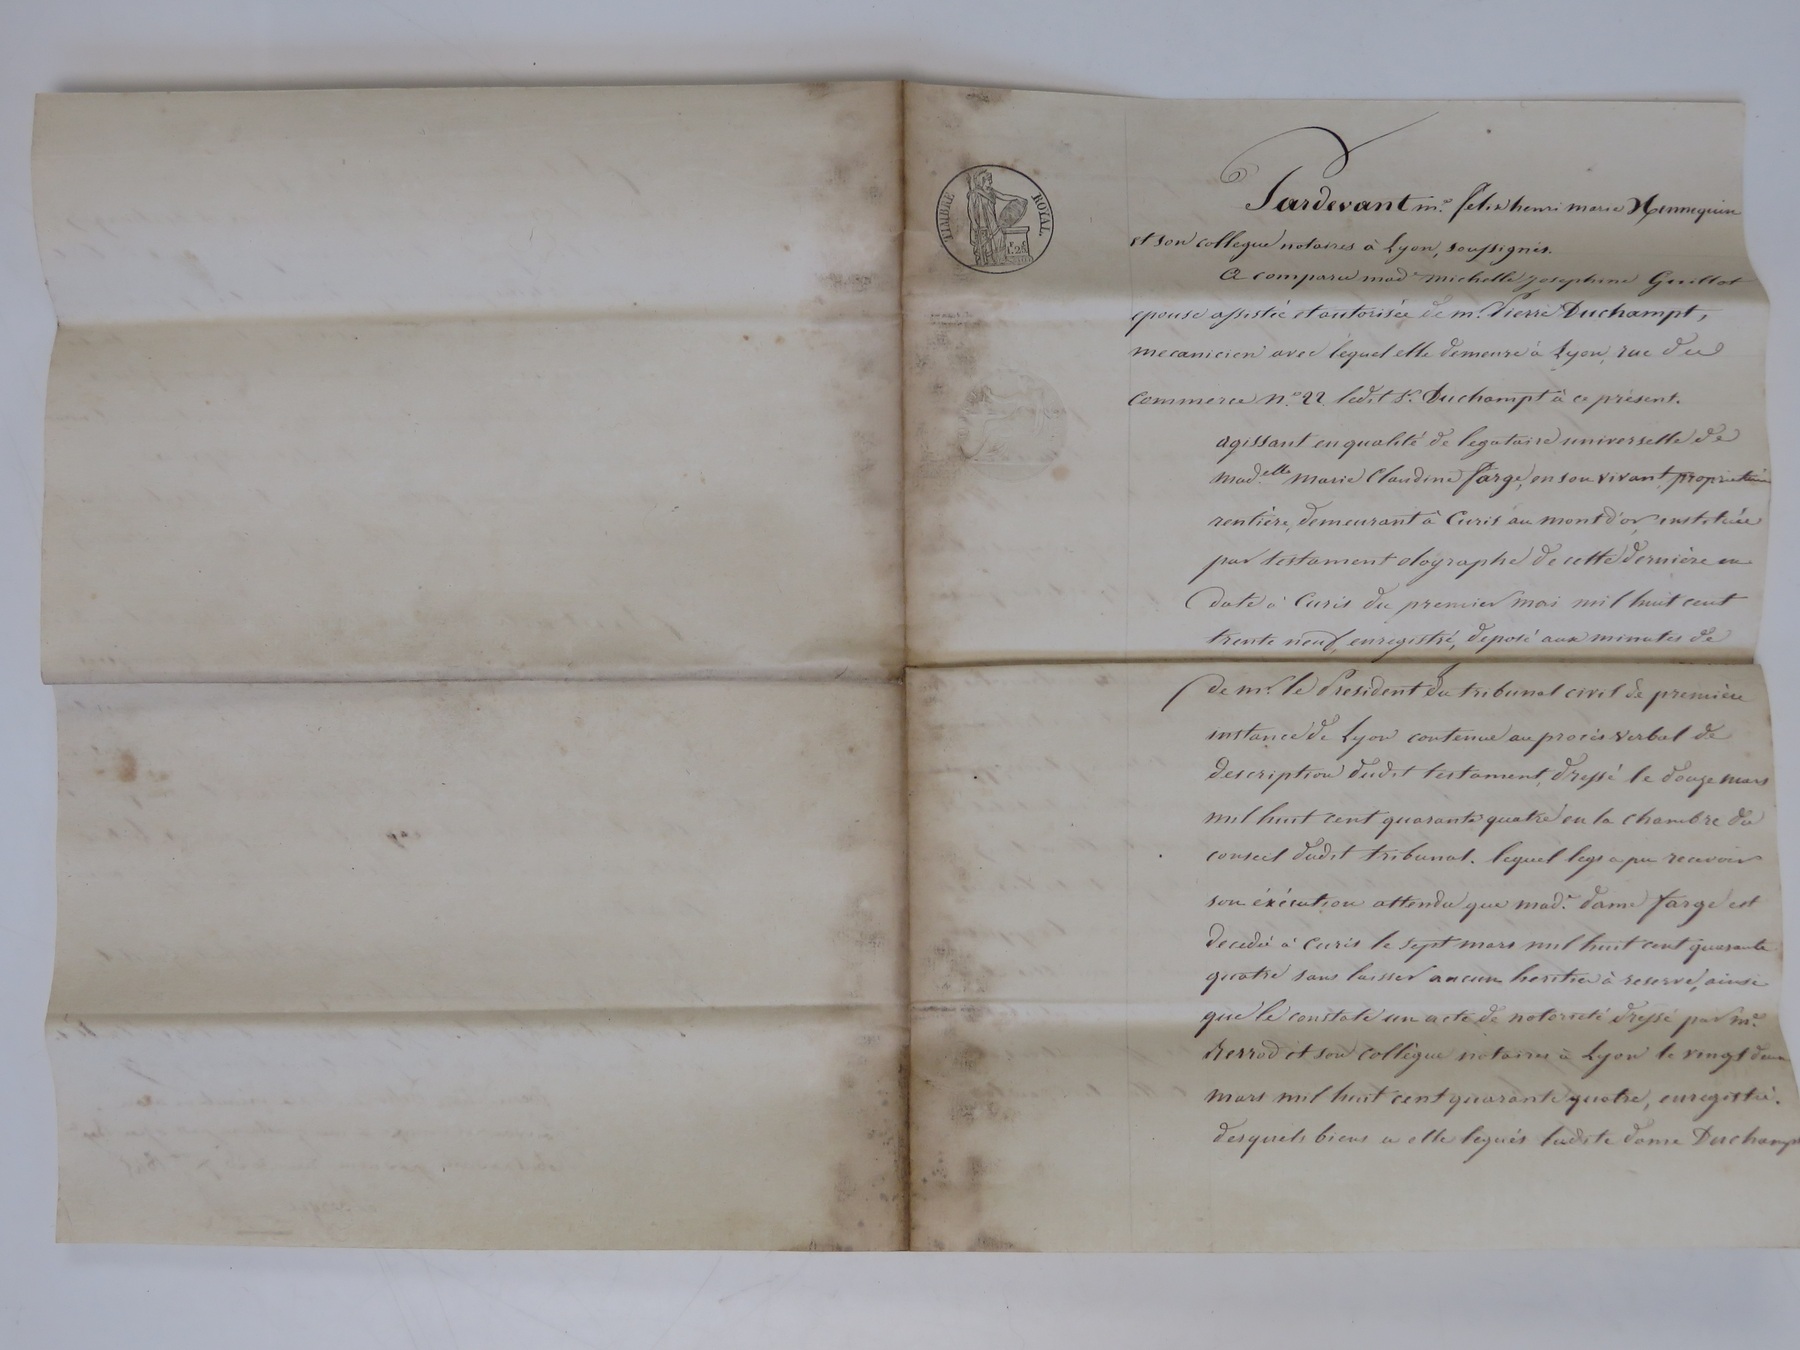 TIMBRE ROYAL
1f.25
Pardevant m.e felix henri marie Hennequin
et son collegue notaires à Lyon, soussignés.
A comparu mad.e michelle josephine Guillot
epouse assistée et autorisée de m.r Pierre Duchampt,
mecanicien avec lequel elle demeure à Lyon, rue du
Commerce N.o 22 ledit S.r Duchampt à ce présent.
agissant en qualité de legataire universelle de
mad.elle marie Claudine farge, en son vivant propriétaire
rentière, demeurant à Curis au mont d'or, instituée
par testament olographe de cette dernière en
date à Curis du premier mai mil huit cent
trente neuf, enregistré, deposé aux minutes de
de m.r le President du tribunal civil de première
instance de Lyon contenue au procès verbal de
description dudit testament, dressé le douze mars
mil huit cent quarante quatre en la chambre du
conseil dudit tribunal. lequel legs a pu recevoir
son exécution attendu que mad.e dame farge est
decedée à Curis le sept mars mil huit cent quarante
quatre sans laisser aucun heritier à reserve, ainsi
que le constate un acte de notorieté dressé par m.e
et son collègue notaires à Lyon le vingt deux
mars mil huit cent quarante quatre, enregistré.
desquels biens a elle legués ladite dame Duchampt